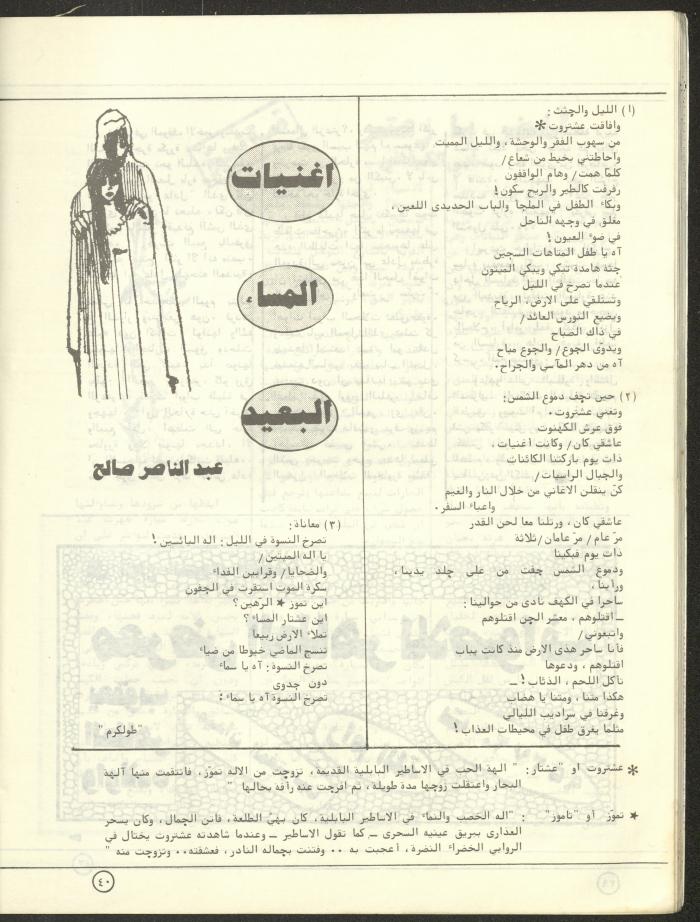 اغنيات
المساء
البعيد
عبد الناصر صالح
(١) الليل والجثث :
وافاقت عشتروت*
من سهوب الفقر والوحشة، والليل المميت
واحاطتني بخيط من شعاع/
كلما همت/ وهام الواقفون
رفرفت كالطير والريح سكون!
وبكاء الطفل في الملجأ والباب الحديدى اللعين،
مغلق في وجهه الناحل
في ضوء العيون!
آه يا طفل المتاهات السجين
جثة هامدة تبكي ويبكي الميتون
عندما تصرخ في الليل
وتستلقي على الارض، الرياح
ويضيع النورس العائد/
في ذاك الصباح
ويدوّى الجوع/ والجوع مباح
آه من دهر المآسي والجراح.
(٢) حين تجف دموع الشمس:
وتغني عشتروت.
فوق عرش الكهنوت
عاشقي كان/ وكانت أغنيات،
ذات يوم باركتنا الكائنات
والجبال الراسيات/
كنّ ينقلن الاغاني من خلال النار والغيم
واعباء السفر.
عاشقي كان، ورتلنا معا لحن القدر
مرّ عام/ مرّ عامان/ثلاثة
ذات يوم فبكينا
ودموع الشمس جفت من على جلد يدينا،
ورأينا،
ساحرا في الكهف نادى من حوالينا:
ــ اقتلوهم، معشر الجن اقتلوهم
واتبعوني/
فأنا ساحر هذى الارض منذ كانت يباب
اقتلوهم، ودعوها
تأكل اللحم، الذئاب! ــ
هكذا متنا، ومتنا يا هضاب
وغرقنا في سراديب الليالي
مثلما يغرق طفل في محيطات العذاب!
(٣) معاناة:
تصرخ النسوة في الليل: اله البائسين!
يا اله الميتين/
والضحايا/ وقرابين الفداء
سكرة الموت استقرت في الجفون
اين تموز * الرهين؟
اين عشتار المساء؟
تملاء الارض ربيعا
تنسج الماضي خيوطا من ضياء
تصرخ النسوة: آه يا سماء
دون جدوى
تصرخ النسوة آه يا سماء!
"طولكرم"
* عشتروت او "عشتار: " الهة الحب في الاساطير البابلية القديمة، تزوجت من الاله تموّز، فانتقمت منها آلهة
البحار واعتقلت زوجها مدة طويلة، ثم افرجت عنه رأفة بحالها "
* تموّز أو "تاموز" : "اله الخصب والنماء في الاساطير البابلية، كان بهيّ الطلعة، فاتن الجمال، وكان يسحر
العذارى ببريق عينيه السحرى ــ كما تقول الاساطير ــ وعندما شاهدته عشتروت يختال في
الروابي الخضراء النضرة، أعجبت به .. وفتنت بجماله النادر، فعشقته.. وتزوجت منه "
٤٠